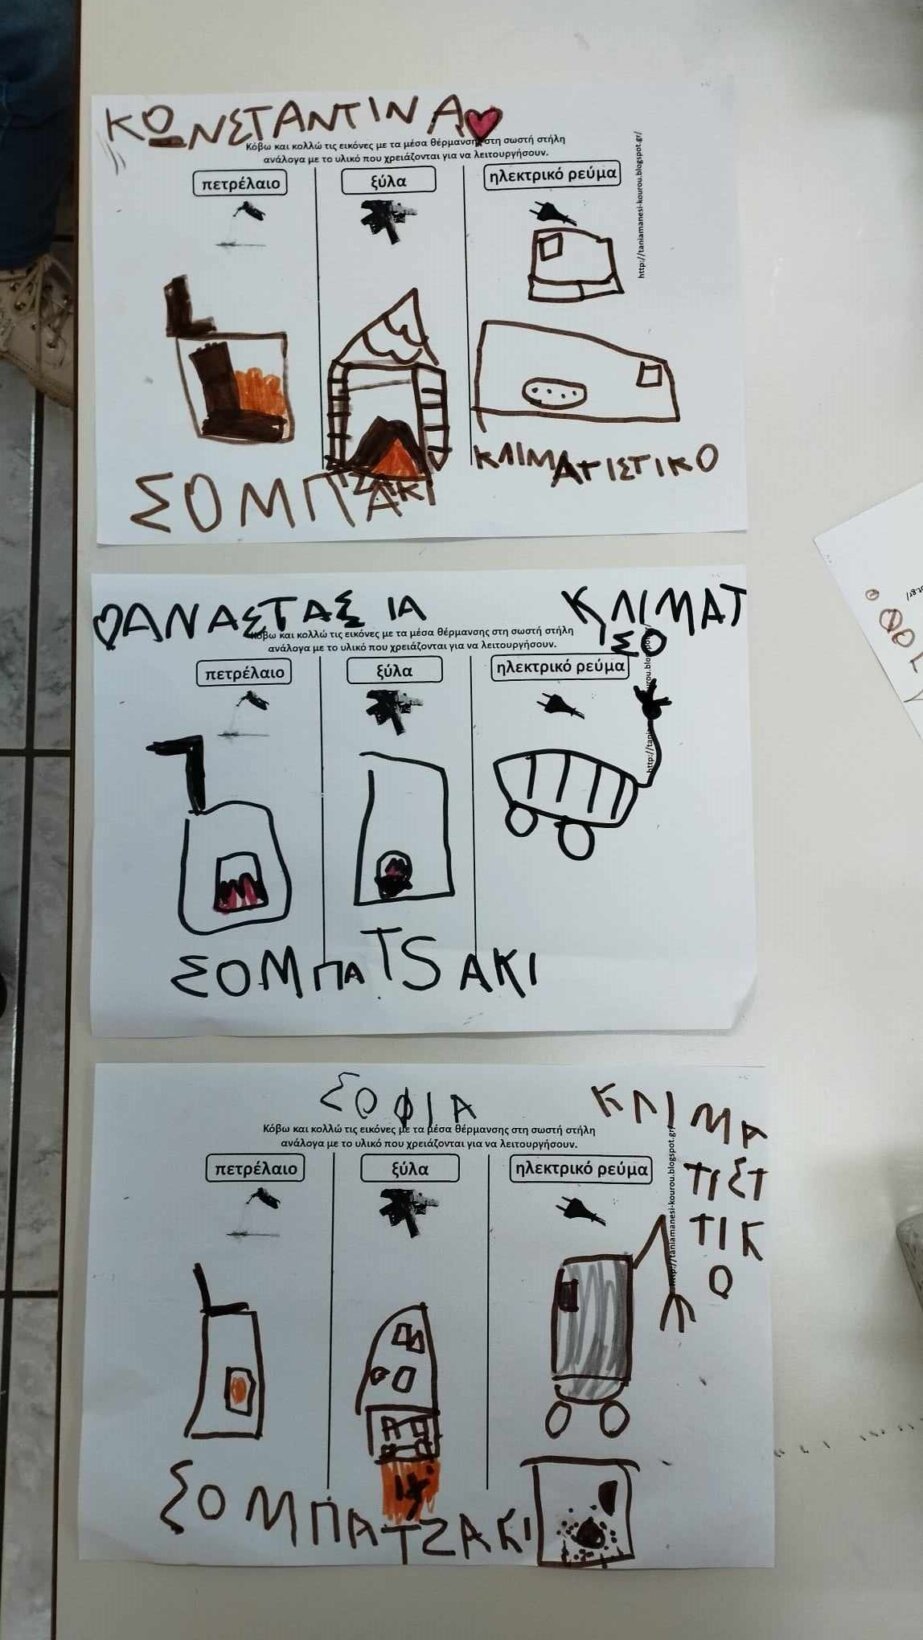 ΚΩΝΣΤΑΝΤΙΝΑ
Κόβω και κολλώ τις εικόνες με τα μέσα θέρμανσης στη σωστή στήλη
ανάλογα με το υλικό που χρειάζονται για να λειτουργήσουν.
πετρέλαιο ξύλα ηλεκτρικό ρεύμα
http://taniamanesi-kourou.blogspot.gr/
ΚΛΙΜΑΤΙΣΤΙΚΟ
ΣΟΜΠΑ
ΤΖΑΚΙ
ΑΝΑΣΤΑΣΙΑ ΚΛΙΜΑΤ
ΣΟ
Κόβω και κολλώ τις εικόνες με τα μέσα θέρμανσης στη σωστή στήλη
ανάλογα με το υλικό που χρειάζονται για να λειτουργήσουν.
πετρέλαιο ξύλα ηλεκτρικό ρεύμα
ΣΟΜΠΑ TSΑΚΙ
ΣΟΦΙΑ ΚΛΙΜΑ
ΤΙΣΤ
ΤΙΚ
Ο
Κόβω και κολλώ τις εικόνες με τα μέσα θέρμανσης στη σωστή στήλη
ανάλογα με το υλικό που χρειάζονται για να λειτουργήσουν.
πετρέλαιο ξύλα ηλεκτρικό ρεύμα
http://taniamanesi-kourou.blogspot.gr/
ΣΟΜΠΑ ΤΖΑΚΙ